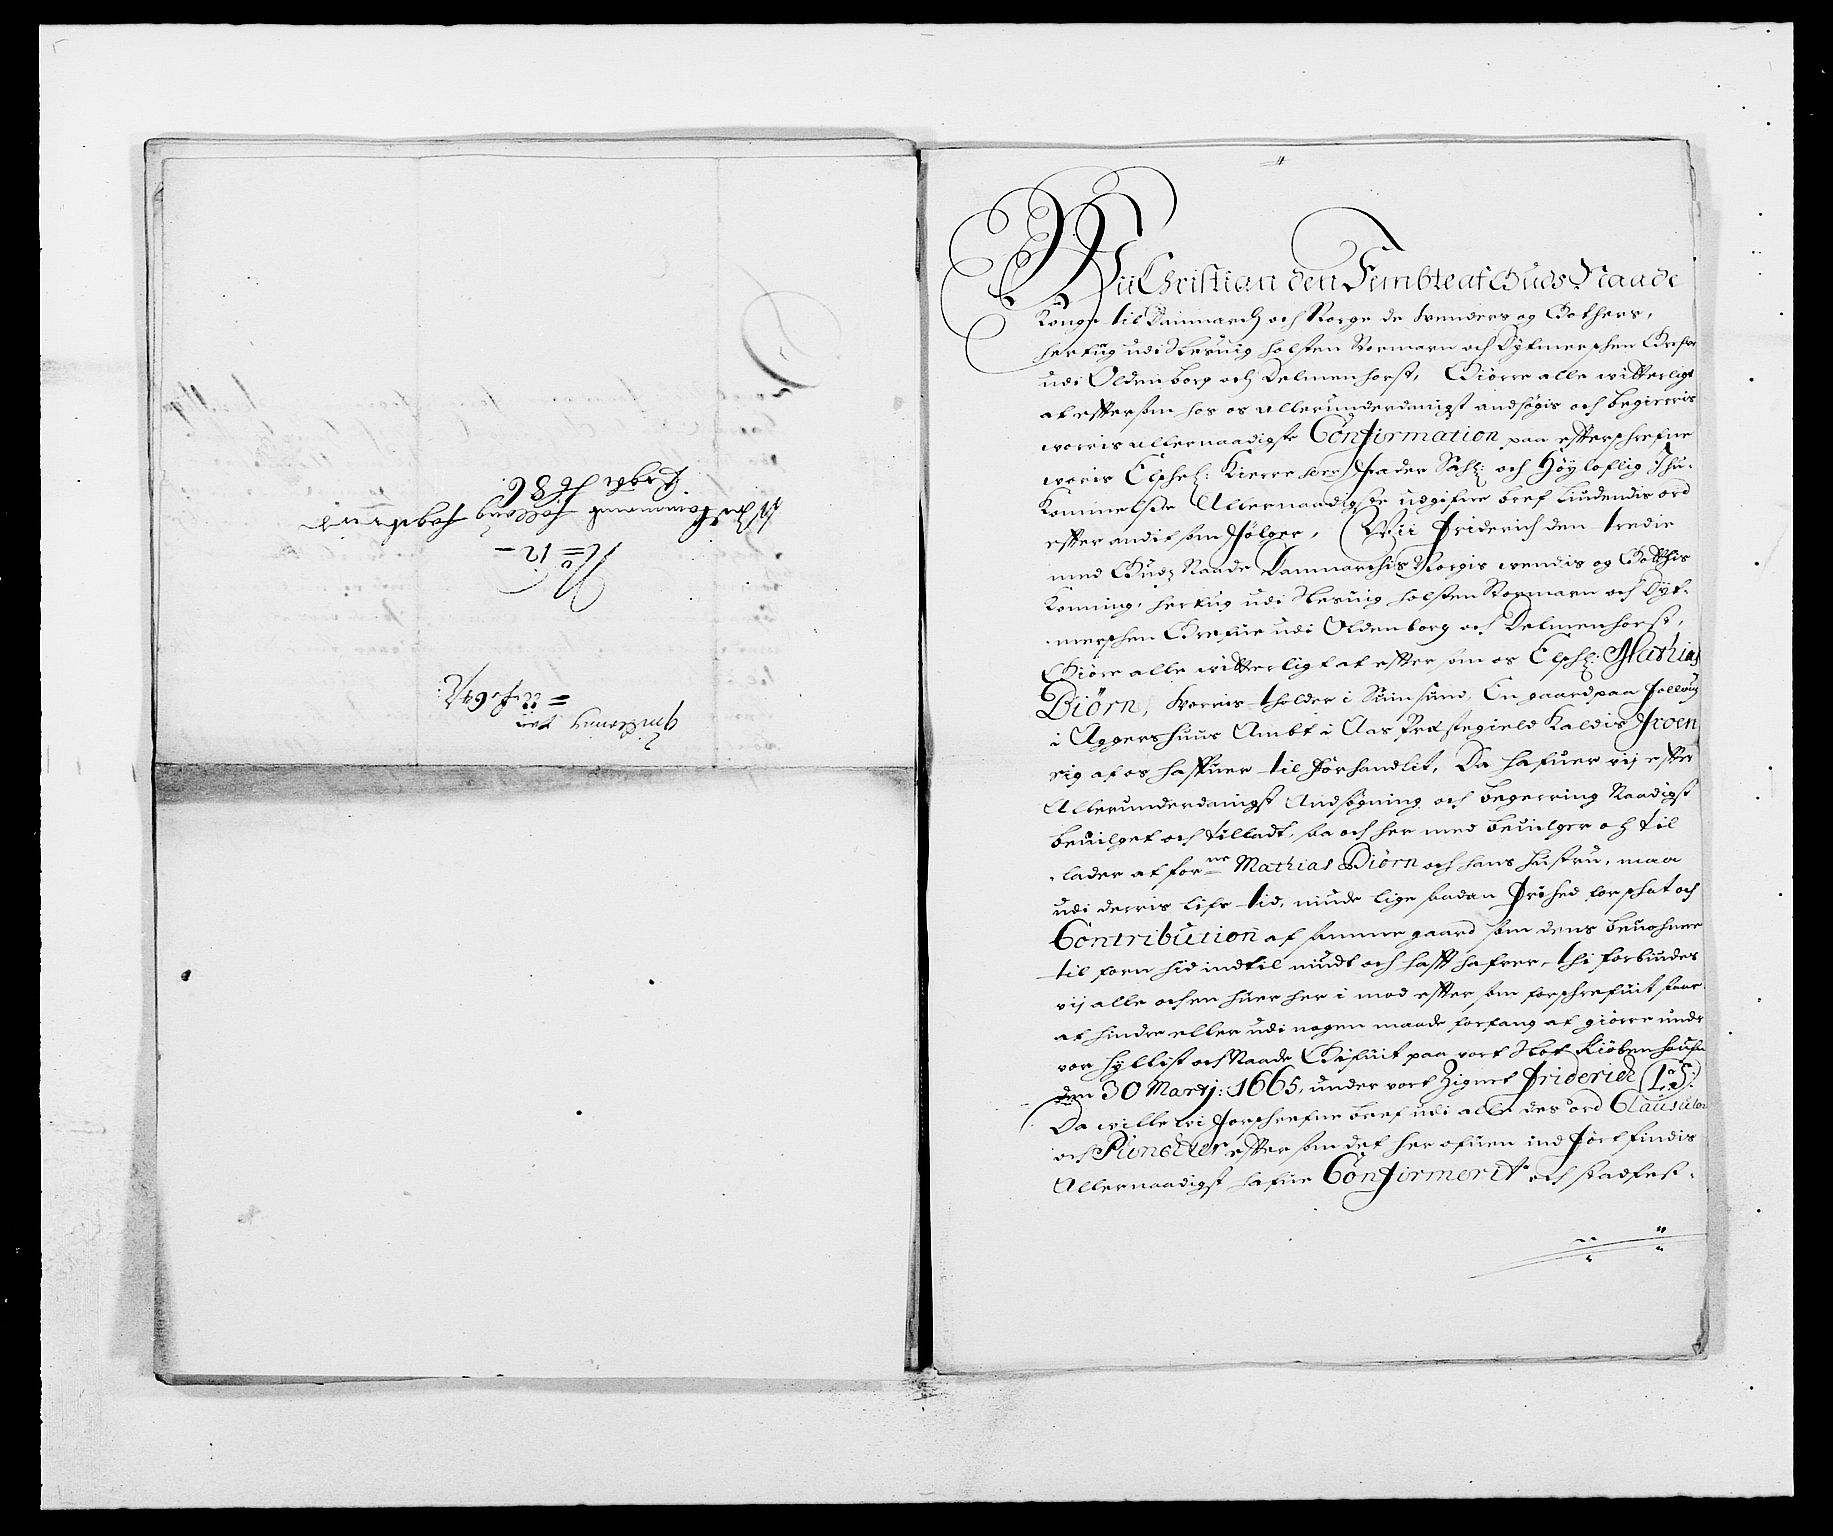 No= 12 –
Follong
Pro 1686
Wii Christian den Fembte af Guds Naade
Konge til Danmarch och Norge de Wenders og Gothers,
hertug udi Slesuig holsten Stormarn och Dytmerschen Grefue
udi Oldenborg och Delmenhorst, Giörre alle witterligt
at effter som hos os allerunderdanigst andsögis och begierris
worris allernaadigste Confirmation paa effterschrefne
woris Elschel: Kierre herr fader Sahl: och Höyloflig Ihu-
kommelse Allernaadigste udgifne bref liudendis ord
effter andit som fölger, Wii Friderich den tredie
med Gudz Naade Danmarchis Norgis wendis og Gotthis
Konning, hertug udi Slesuig holsten Stormarn och Dyt-
merschen Grefue udi Oldenborg och Delmenhorst,
Giöre alle witterligt at effter som os Elschl: Mathias
Biörn, worris tholder i Suinsund, En gaard paa follaug
i Aggershuus Ambt i Aas Prestegield Kaldis Froen
rig af os haffuer til forhandlit, Da hafuer vij effter
Allerunderdanigst Andsögning och begerring Naadigst
beuilget och tilladt, saa och her med beuilger och til
lader at forne Mathias Biörn och hans hustru, maa
udi derris lifs tid, niude lige saadan Frihed for schat och
Contribution af samme gaard som dens beuohnere
til forn hid indtil niudt och hafft hafver, thi forbiudes
vij alle och en huer her i mod effter som forschrefuit staar
at hindre eller udi nogen maade forfang at giörre under
vor hyllist och Naade Gifuit paa vort Slot Kiöbenhaufn
den 30 Martij: 1665, under vort Zignet Friderich (L.S:)
Da wille wi forschrefne bref udi alle des ord Clausuler
och Puncter effter som det her ofuen ind fört findis
Allernaadigst hafue Confirmerit och stadfest-